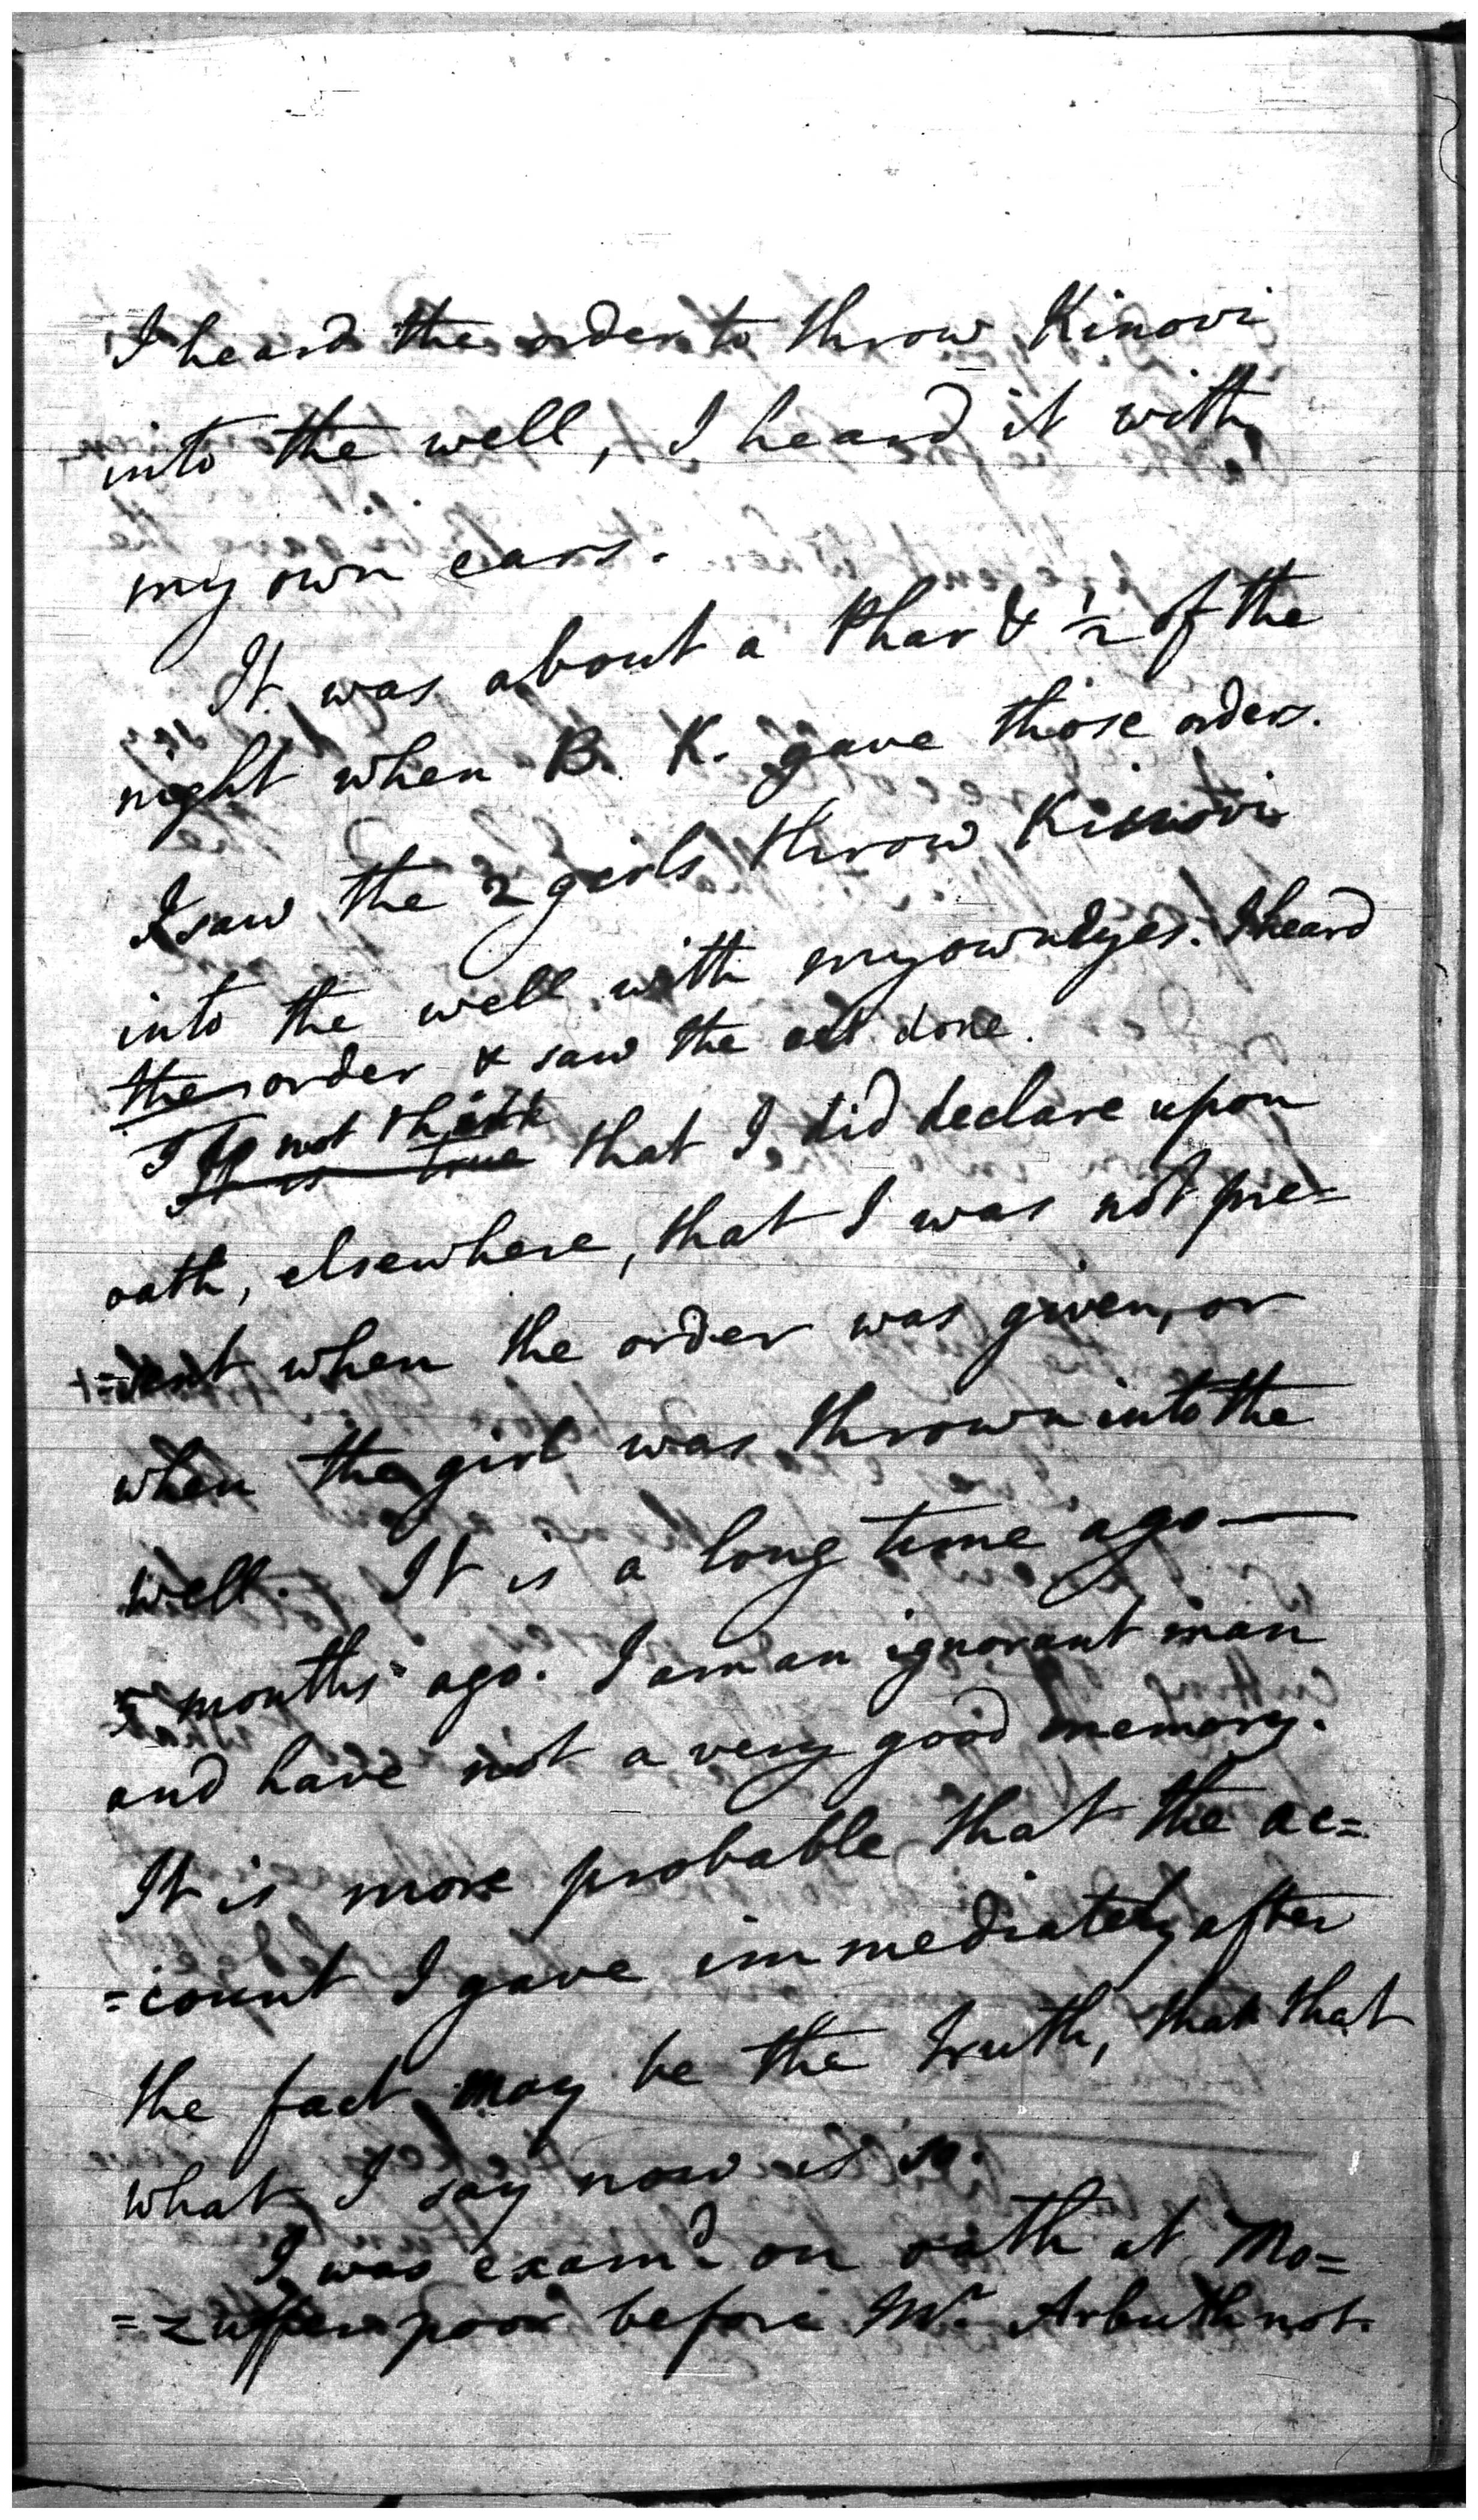 I heard the order to throw Kinovi
into the well, I heard it with
my own ears.
It was about a Phar & 1/2 of the
night when B. K. gave those orders.
I saw the 2 girls throw Kinovi
into the well with my own eyes. I heard
the order & saw the act done.
I do not think
It is true that I did declare upon
oath, elsewhere, that I was not pre=
=sent when the order was given, or
when the girl was thrown into the
well. It is a long time ago —
5 months ago. I am an ignorant man
and have not a very good memory.
It is more probable that the ac=
=count I gave immediately after
the fact may be the truth, than that
what I say now is so.
I was exam.d on oath at Mo=
=zufferpoor before Mr. Arbuthnot.